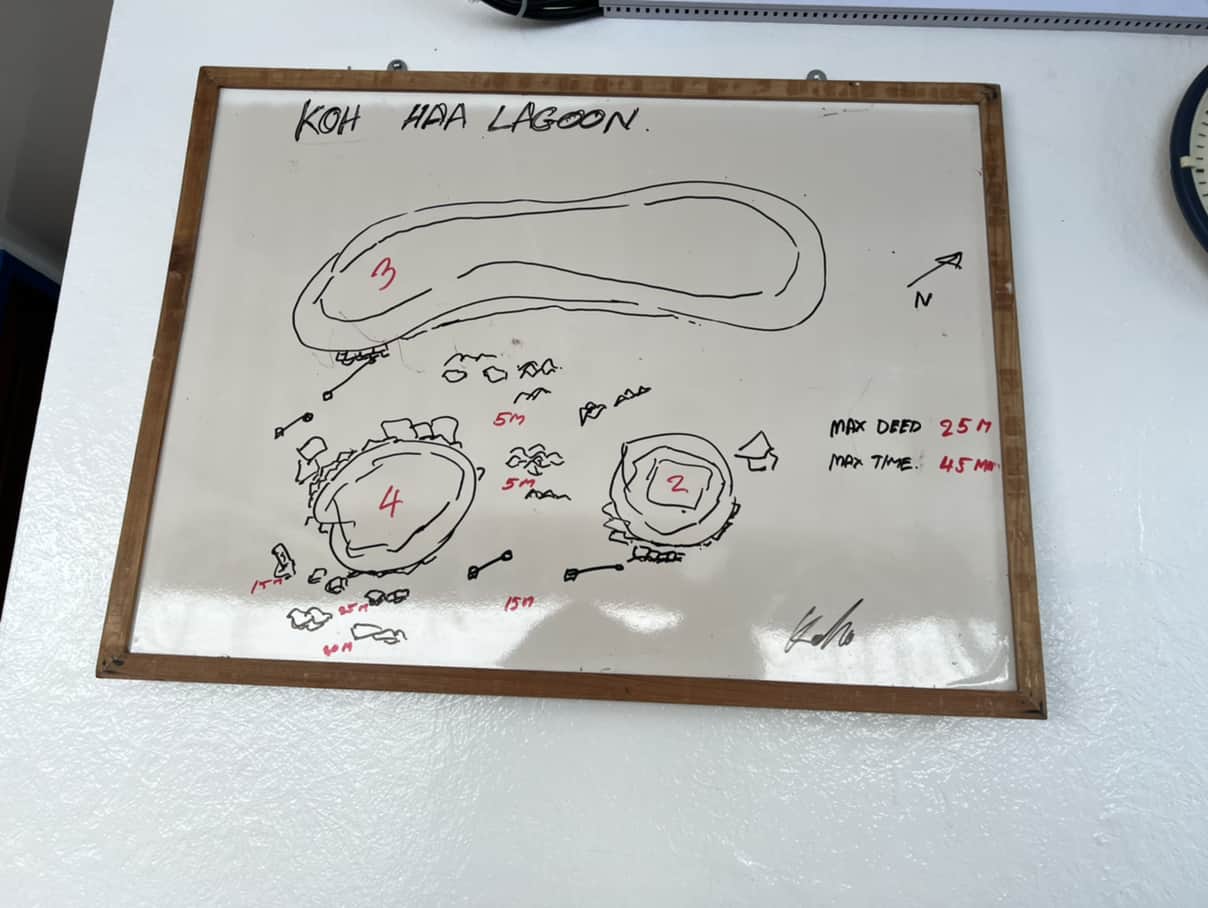 KOH HAA LAGOON.
3
N
5M
MAX DEED 25M
MAX TIME. 45 MIN
5M
4
2
15M
25M
15M